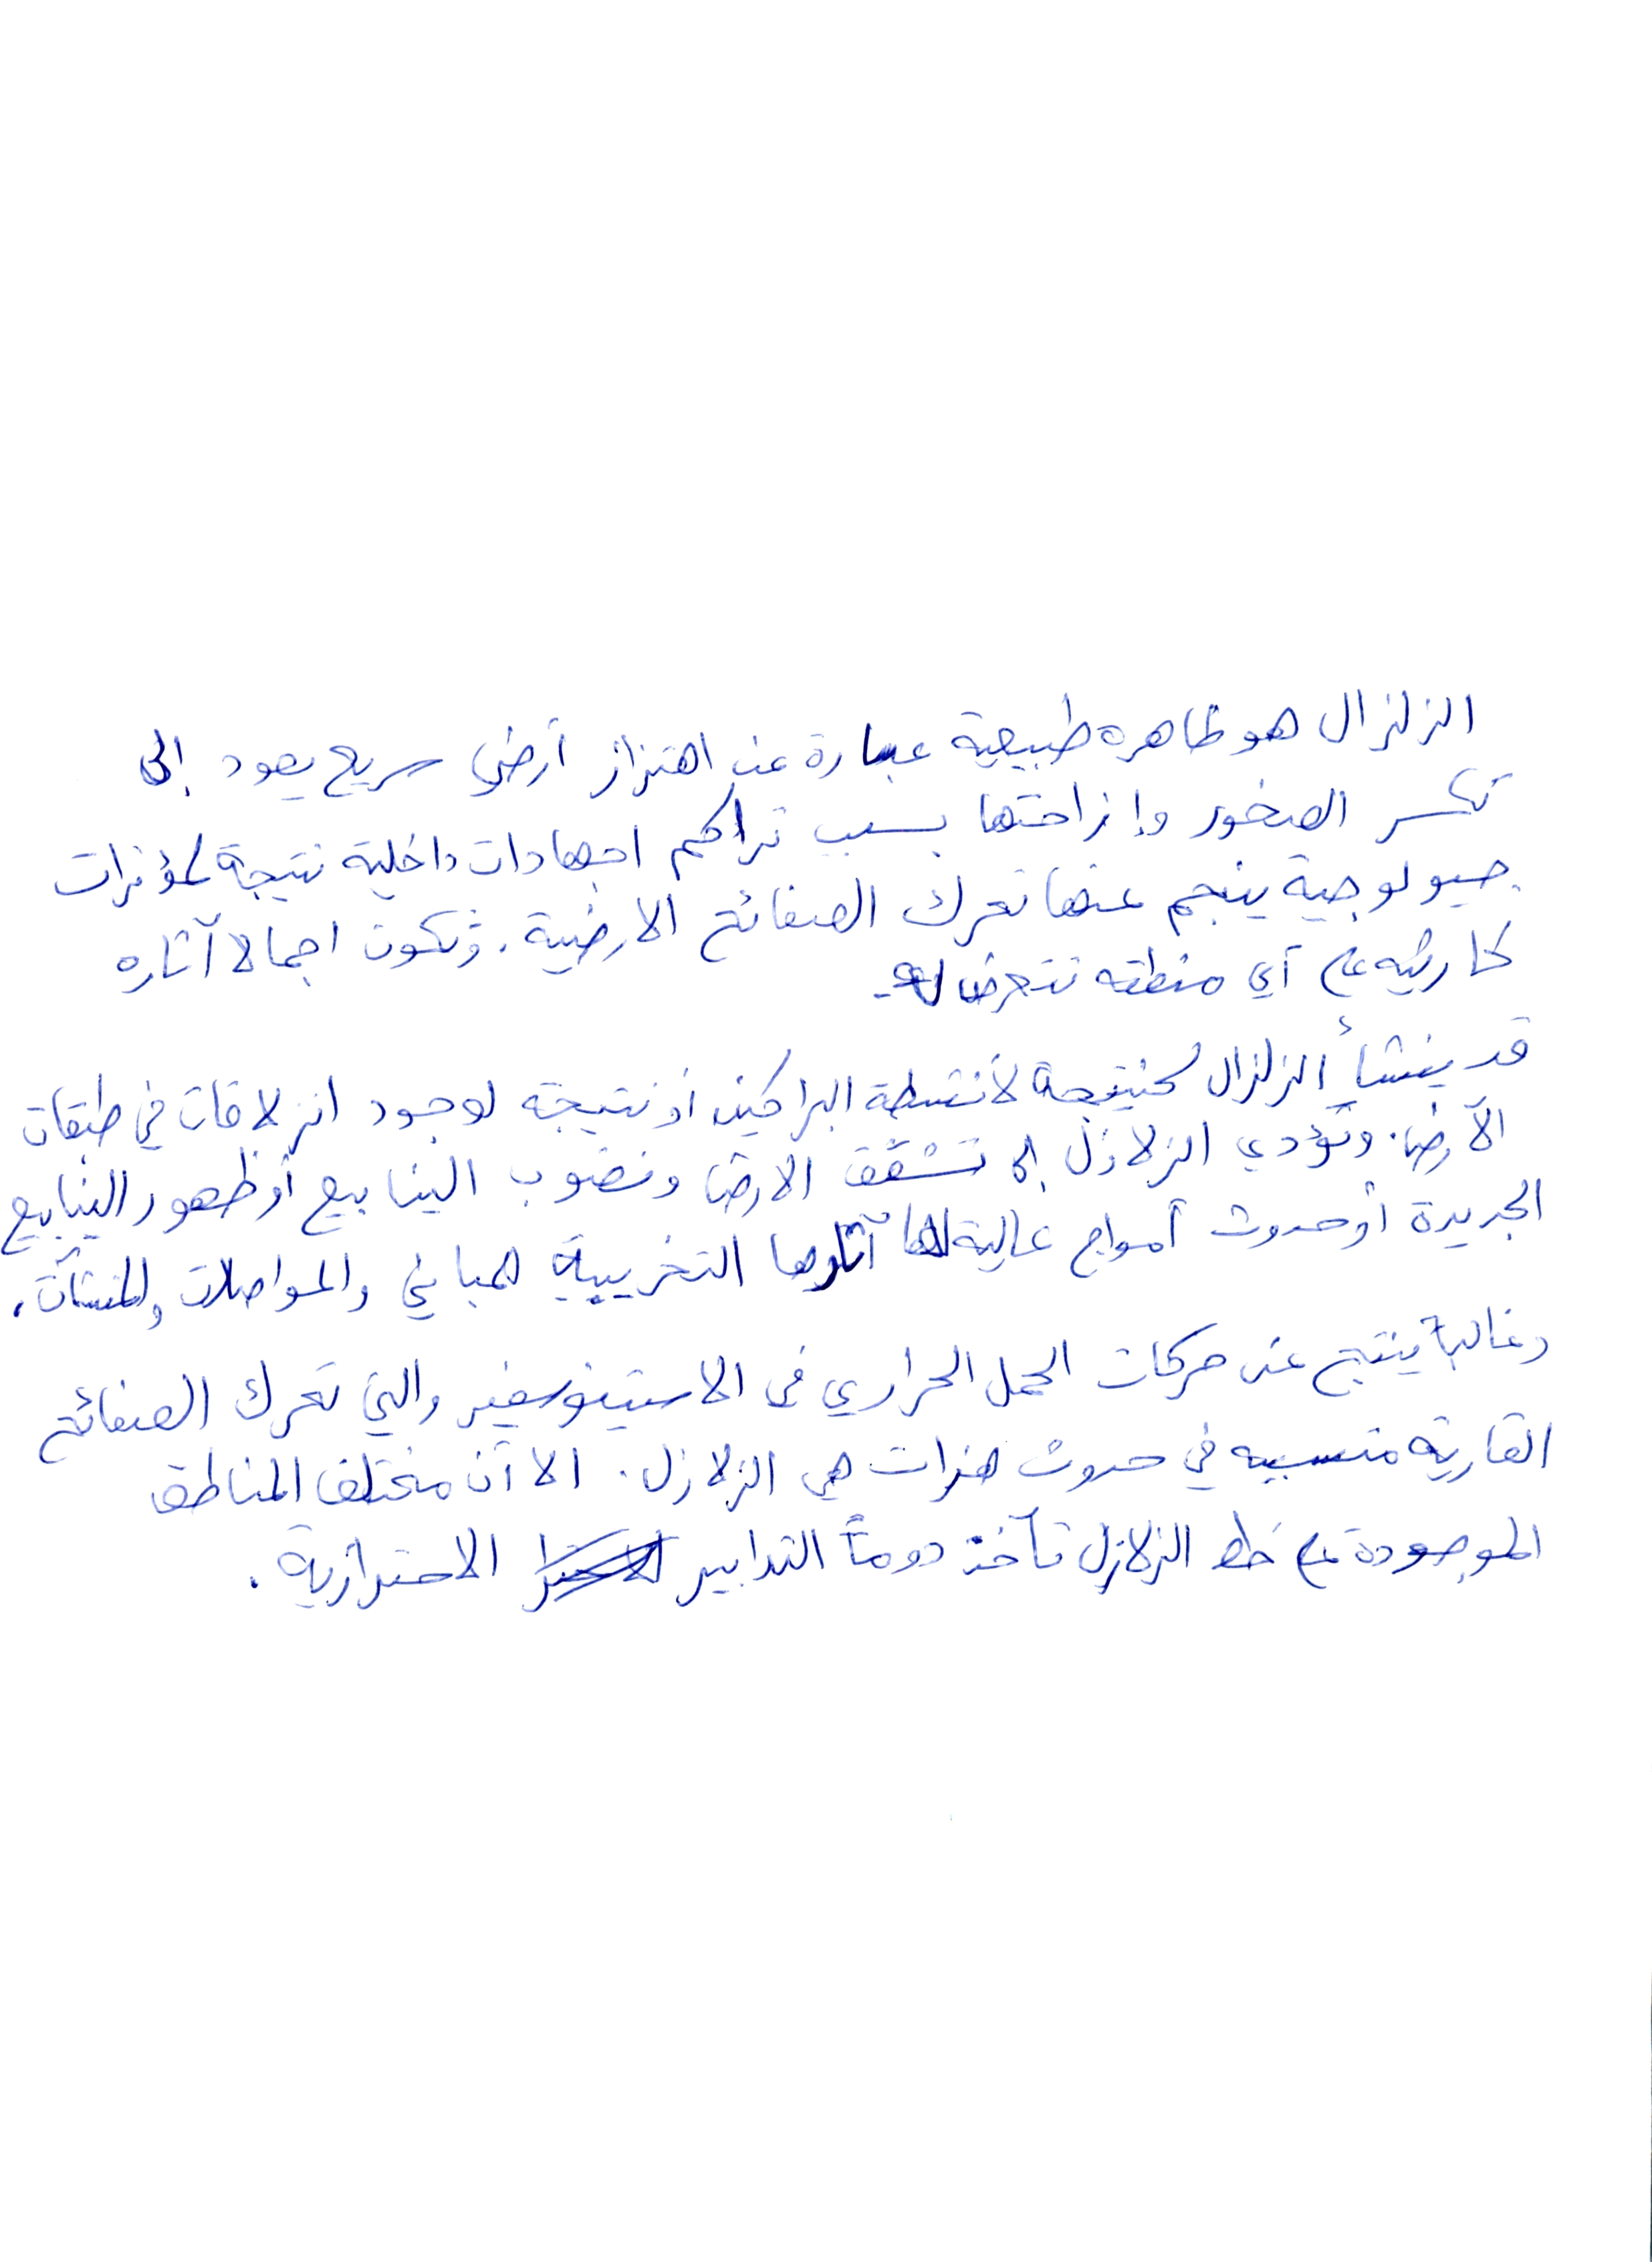 الزلزال هو ظاهره طبيعية عبارة عن اهتزاز أرضي سريع يعود إلى
تكسر الصخور وإزاحتها بسبب تراكم اجهادات داخلية نتيجة لمؤثرات
جيولوجية ينجم عنها تحرك الصفائح الارضية. وتكون اجمالا آثاره
كارثيه على أي منطقه تتعرض له.
قد ينشأ الزلزال كنتيجة لأنشطة البراكين أو نتيجة لوجود انزلاقات في طبقات
الأرض. وتؤدي الزلازل إلى تشقق الارض ونضوب الينابيع أو ظهور الينابيع
الجديدة أو حدوث أمواج عالية لها آثارها التخريبية للمباني والمواصلات والمنشآت.
وغالباً ينتج عن حركات الحمل الحراري في الاستينوسفير والتي تحرك الصفائح
القارية متسببه في حدوث هزات هي الزلازل. الا أن مختلف المناطق
الموجودة على خط الزلازل تأخذ دوماً التدابير الاحترازية.